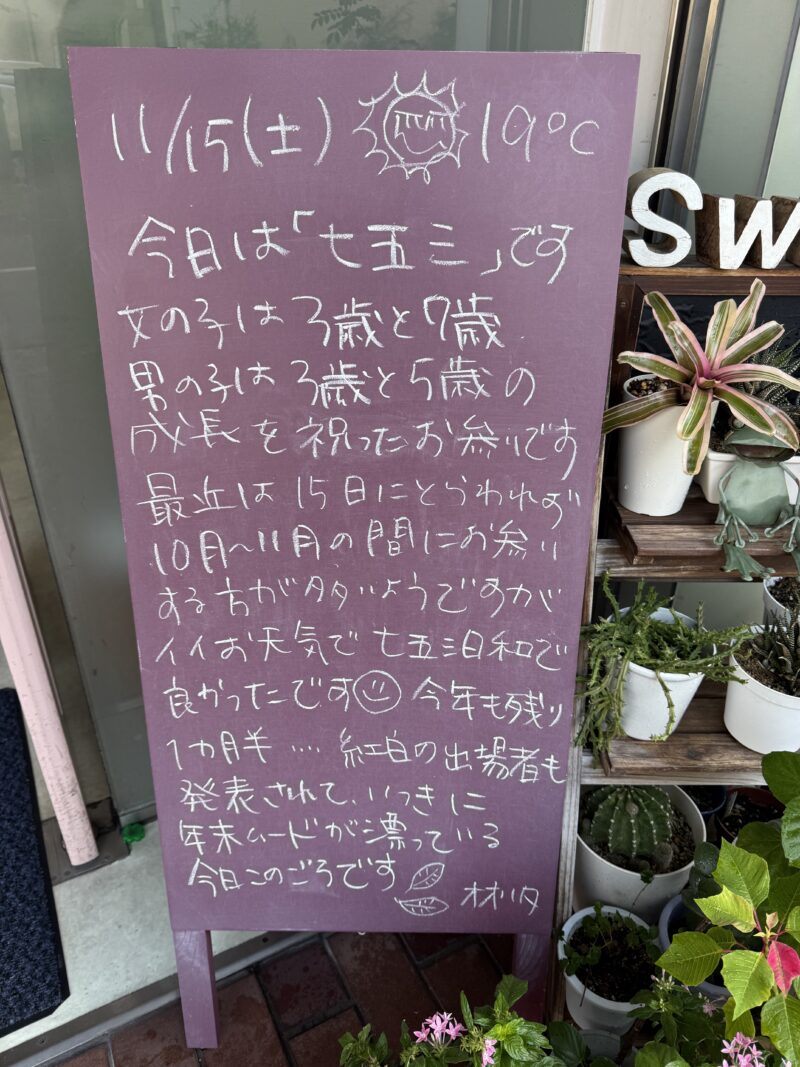 11/15(土) 19°C
今日は「七五三」です
女の子は3歳と7歳
男の子は3歳と5歳の
成長を祝ったお参りです
最近は15日にとらわれず
10月〜11月の間にお参り
する方が多いようですが
イイお天気で七五三日和で
良かったです 今年も残り
1カ月半…紅白の出場者も
発表されて、いっきに
年末ムードが漂っている
今日このごろです
SW